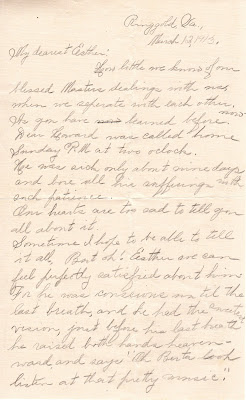 Ringgold, Ga,
March 13, 1913.
My dearest Esther:
How little we know of our
blessed Masters dealings with us,
when we seperate with each other,
As you have learned before now
Dear Howard was called home
Sunday P.M. at two oclock.
He was sick only about nine days
and bore all his sufferings with
such patience.
Our hearts are too sad to tell you
all about it.
Sometime I hope to be able to tell
it all, But oh! Esther we can
feel perfectly satisfied about him
For he was conscious up til the
last breath, and he had the sweetest
vision, just before his last breath
he raised both hands heaven-
ward, and says: "Oh Berta look
listen at that pretty music."